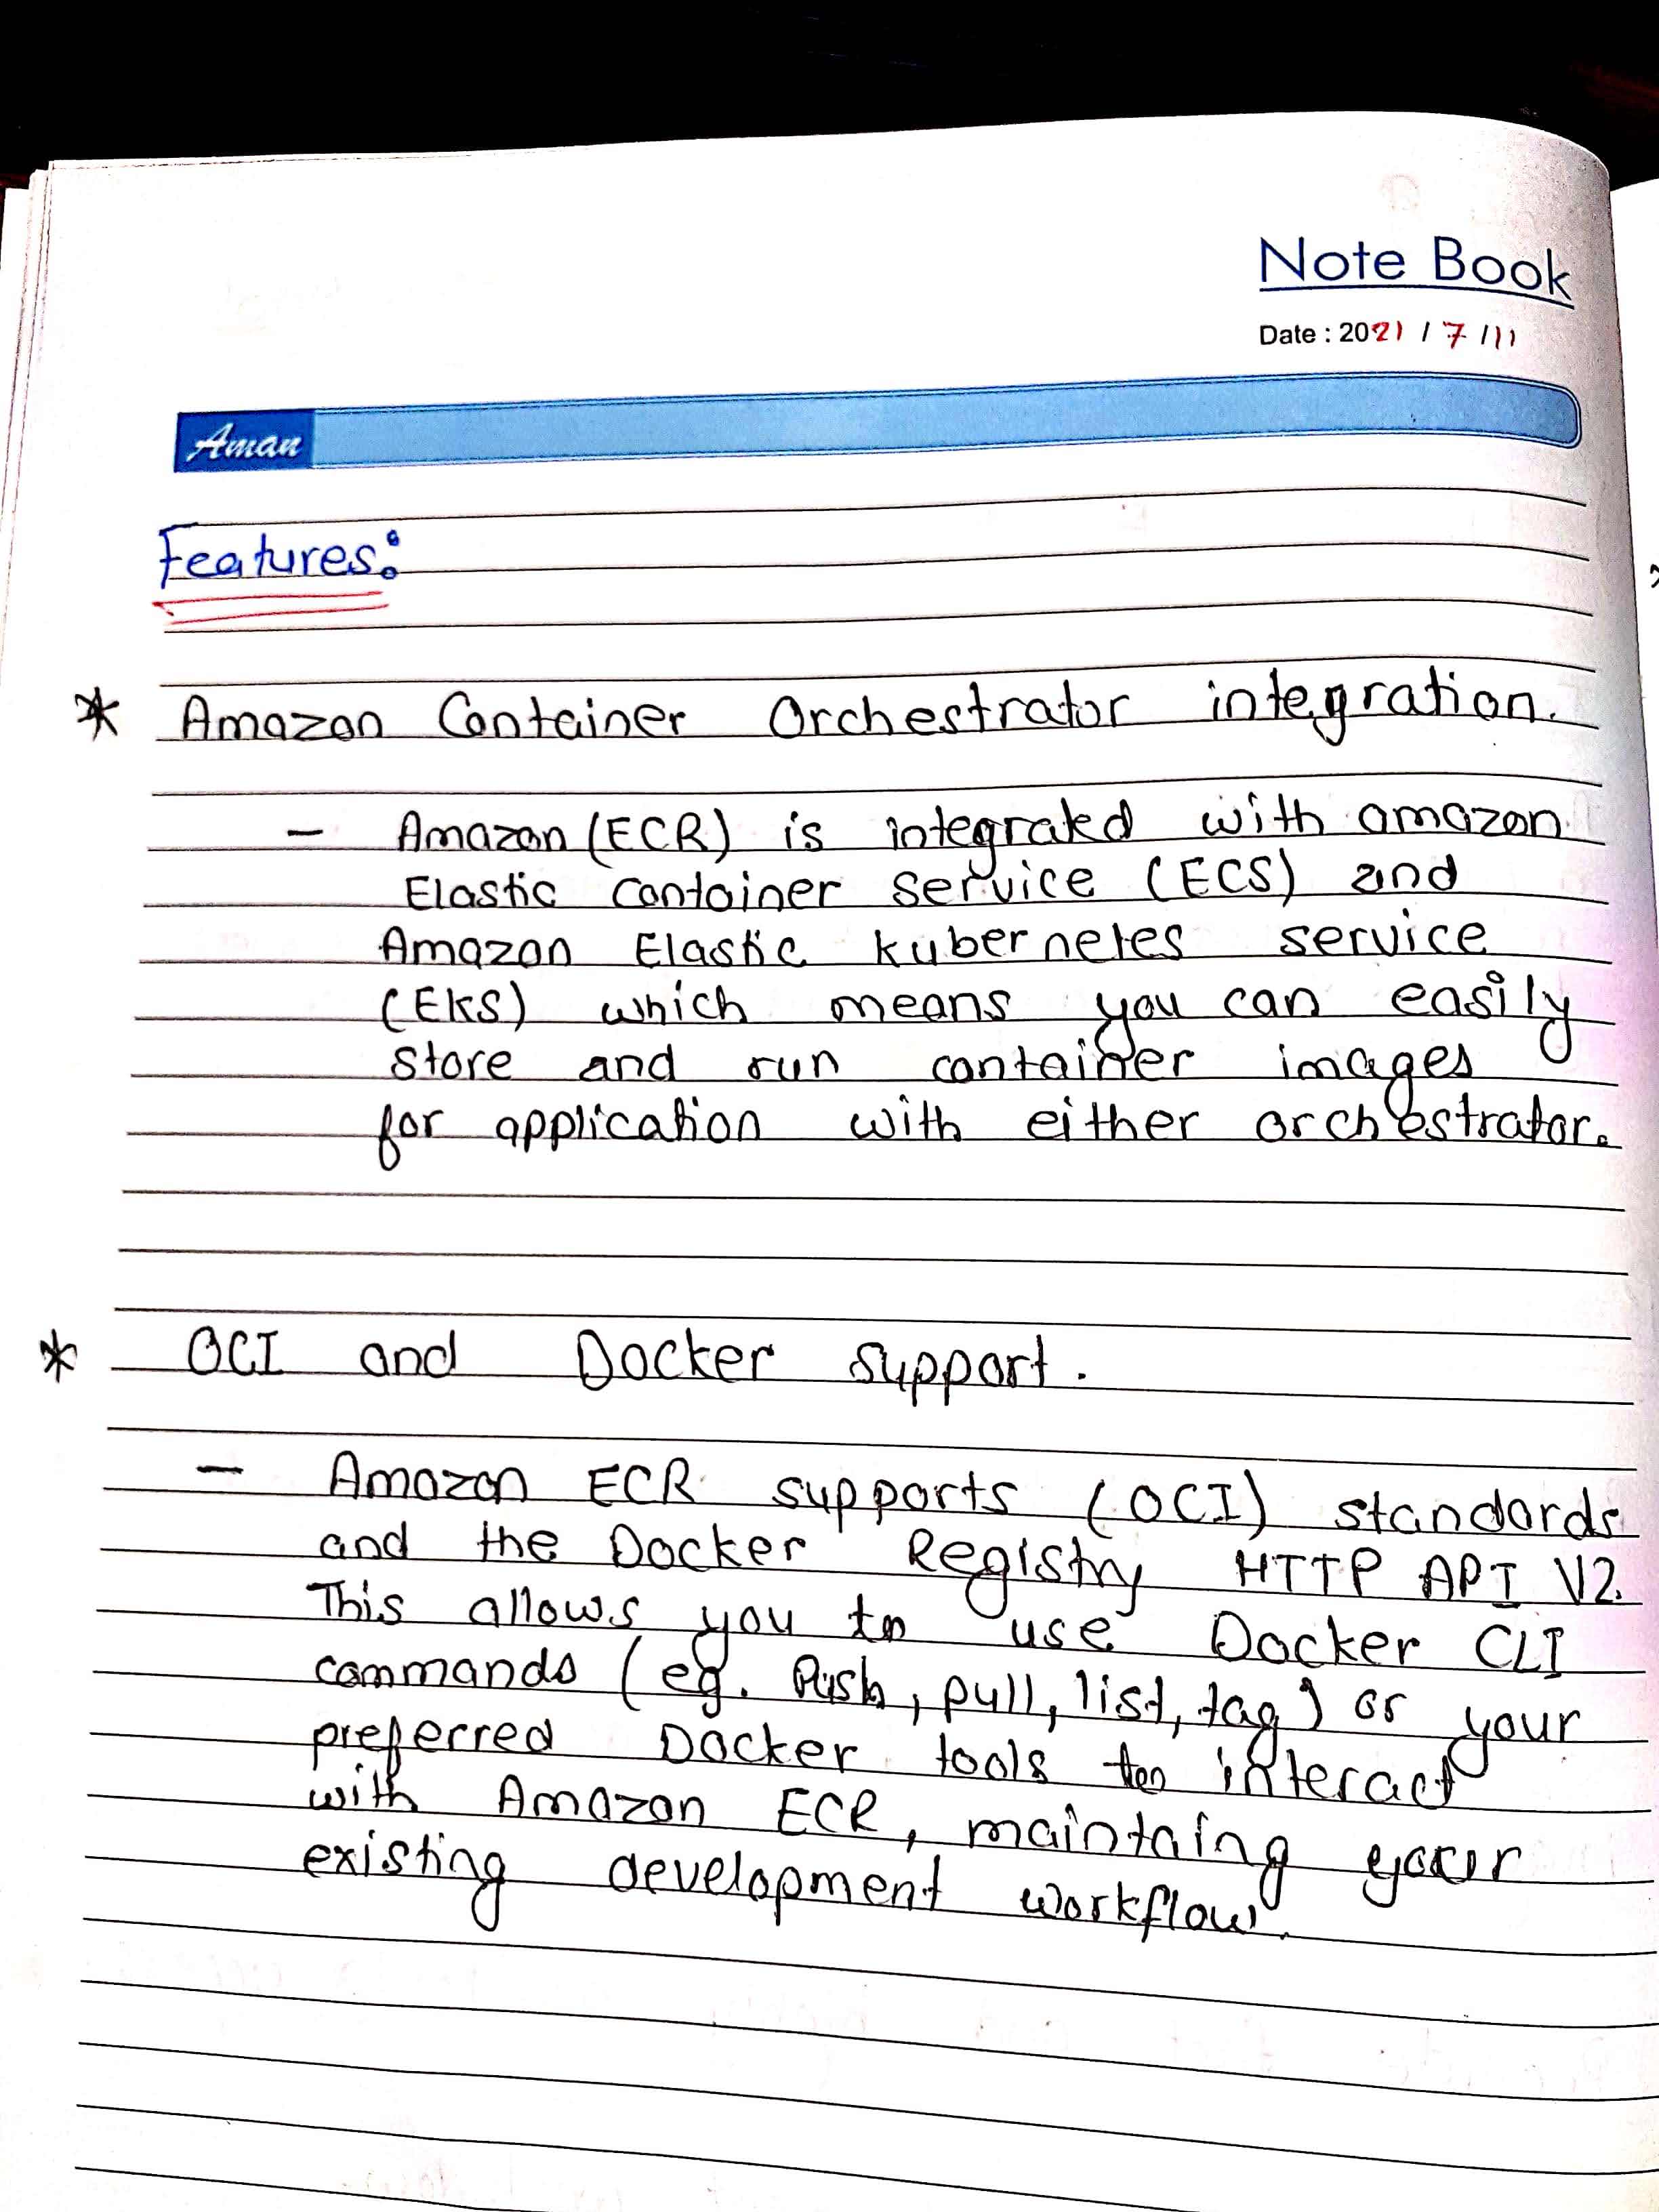 Note Book
Date : 2021 / 7 / 11
Aman
Features:
* Amazon Container Orchestrator integration.
- Amazon (ECR) is integrated with amazon
Elastic container service (ECS) and
Amazon Elastic kubernetes service
(EKS) which means you can easily
store and run container images
for application with either orchestrator.
* OCI and Docker support.
- Amazon ECR supports (OCI) standards
and the Docker Registry HTTP API V2.
This allows you to use Docker CLI
commands (eg. Push, pull, list, tag) or your
preferred Docker tools to interact
with Amazon ECR, maintaing your
existing development workflow.